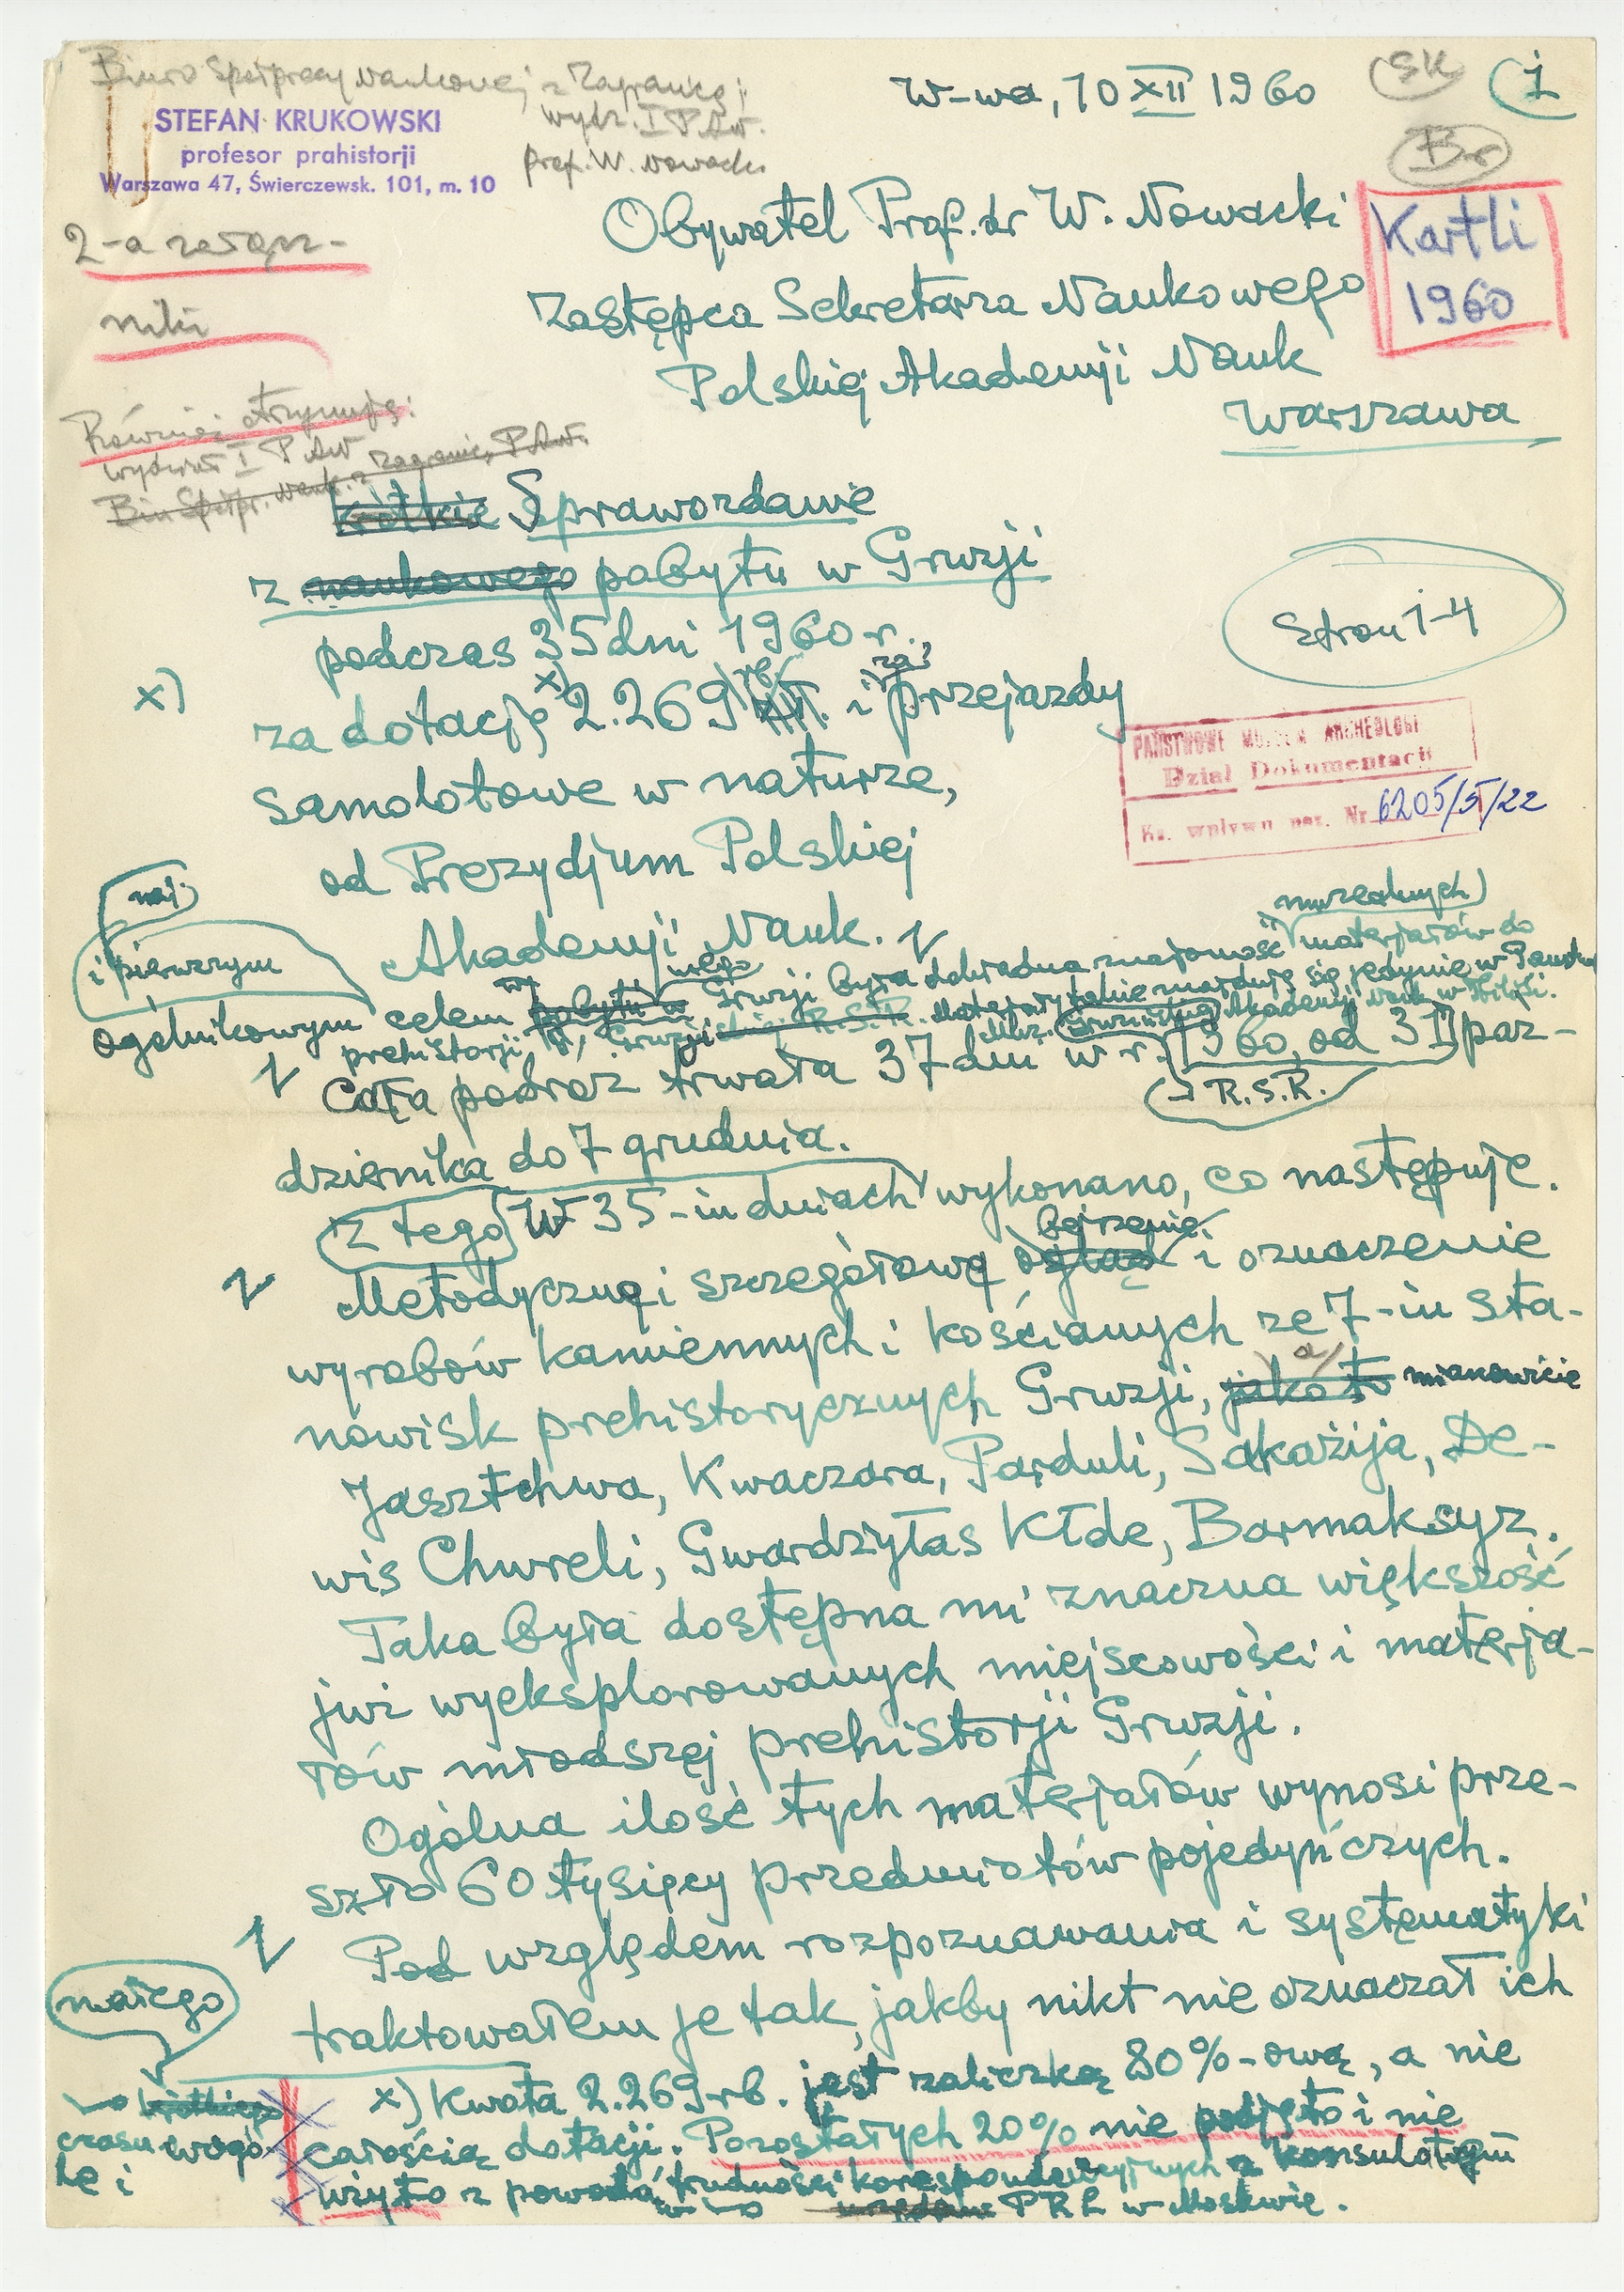 Biuro Spółpracy Naukowej z Zagranicą i
wydz. I PAN.
prof. W. Nowacki
STEFAN KRUKOWSKI
profesor prahistorji
Warszawa 47, Świerczewsk. 101, m. 10
W-wa, 10 XII 1960
SK
1
Br
Kartli
1960
2-a załącz-
niki
Obywatel Prof. dr W. Nowacki
Zastępca Sekretarza Naukowego
Polskiej Akademji Nauk
Warszawa
Również otrzymują:
wydział I PAN
Biu Spółpr. Nauk. z Zagranic, PAN.
Krótkie Sprawozdanie
z naukowego pobytu w Gruzji
Stron 1-4
podczas 35 dni 1960 r.
x) za dotację x) 2.269 rb i za przejazdy
samolotowe w naturze,
od Prezydjum Polskiej
Akademji Nauk.
PAŃSTWOWE MUZEUM ARCHEOLOGI
Dział Dokumentacji
Ks. wpływu poz. Nr 6205/5/22
naj-
i pierwszym
muzealnych
ogólnikowym celem pobytu w Gruzji była dokładna znajomość materjałów do
prehistorji Gruzji R.S.R. Materjały znajdują się jedynie w Państw
Muz. Gruzińskiej Akademji Nauk w Tbilisi.
Cała podróż trwała 37 dni w r. 1960, od 31 paź-
R.S.R.
dziernika do 7 grudnia.
Z tego w 35-iu dniach wykonano, co następuje.
Metodyczne i szczegółowe obejrzenie i oznaczenie
wyrobów kamiennych i kościanych ze 7-iu sta-
nowisk prehistorycznych Gruzji, jako to mianowicie
Jasztchwa, Kwaczara, Parduli, Sakażija, De-
wis Chwreli, Gwardżyłas Kłde, Barmaksyz.
Taka była dostępna mi znaczna większość
już wyeksplorowanych miejscowości i materja-
łów młodszej prehistorji Gruzji.
Ogólna ilość tych materjałów wynosi prze-
szło 60 tysięcy przedmiotów pojedyńczych.
Pod względem rozpoznawania i systematyki
traktowałem je tak, jakby nikt nie oznaczał ich
małego
krótkiego
czasu wogó-
le i
x) Kwota 2.269 rb. jest zaliczką 80%-ową, a nie
całością dotacji. Pozostałych 20% nie podjęto i nie
użyto z powodu trudności korespondencyjnych z konsulatem
PRL w Moskwie.